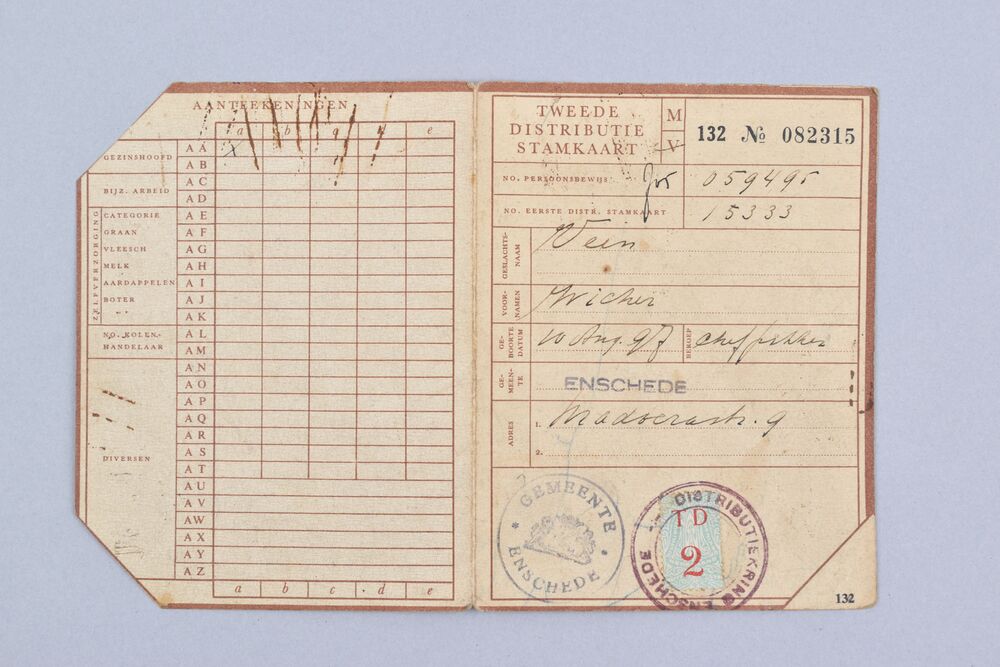 AANTEEKENINGEN
a b c e
GEZINSHOOFD
BIJZ. ARBEID
ZELFVERZORGING
CATEGORIE
GRAAN
VLEESCH
MELK
AARDAPPELEN
BOTER
NO. KOLEN-
HANDELAAR
DIVERSEN
A A X
A B
A C
A D
A E
A F
A G
A H
A I
A J
A K
A L
A M
A N
A O
A P
A Q
A R
A S
A T
A U
A V
A W
A X
A Y
A Z
a b c d e
TWEEDE
DISTRIBUTIE
STAMKAART
M
V
132 № 082315
NO. PERSOONSBEWIJS 059495
NO. EERSTE DISTR. STAMKAART 15333
GESLACHTS-
NAAM
Veen
VOOR-
NAMEN
Wicher
GE-
BOORTE
DATUM
10 Aug. 97
BEROEP
GE-
MEEN-
TE
ENSCHEDE
ADRES
1.
9
2.
GEMEENTE
ENSCHEDE
DISTRIBUTIEKRING
ENSCHEDE
TD
2
132